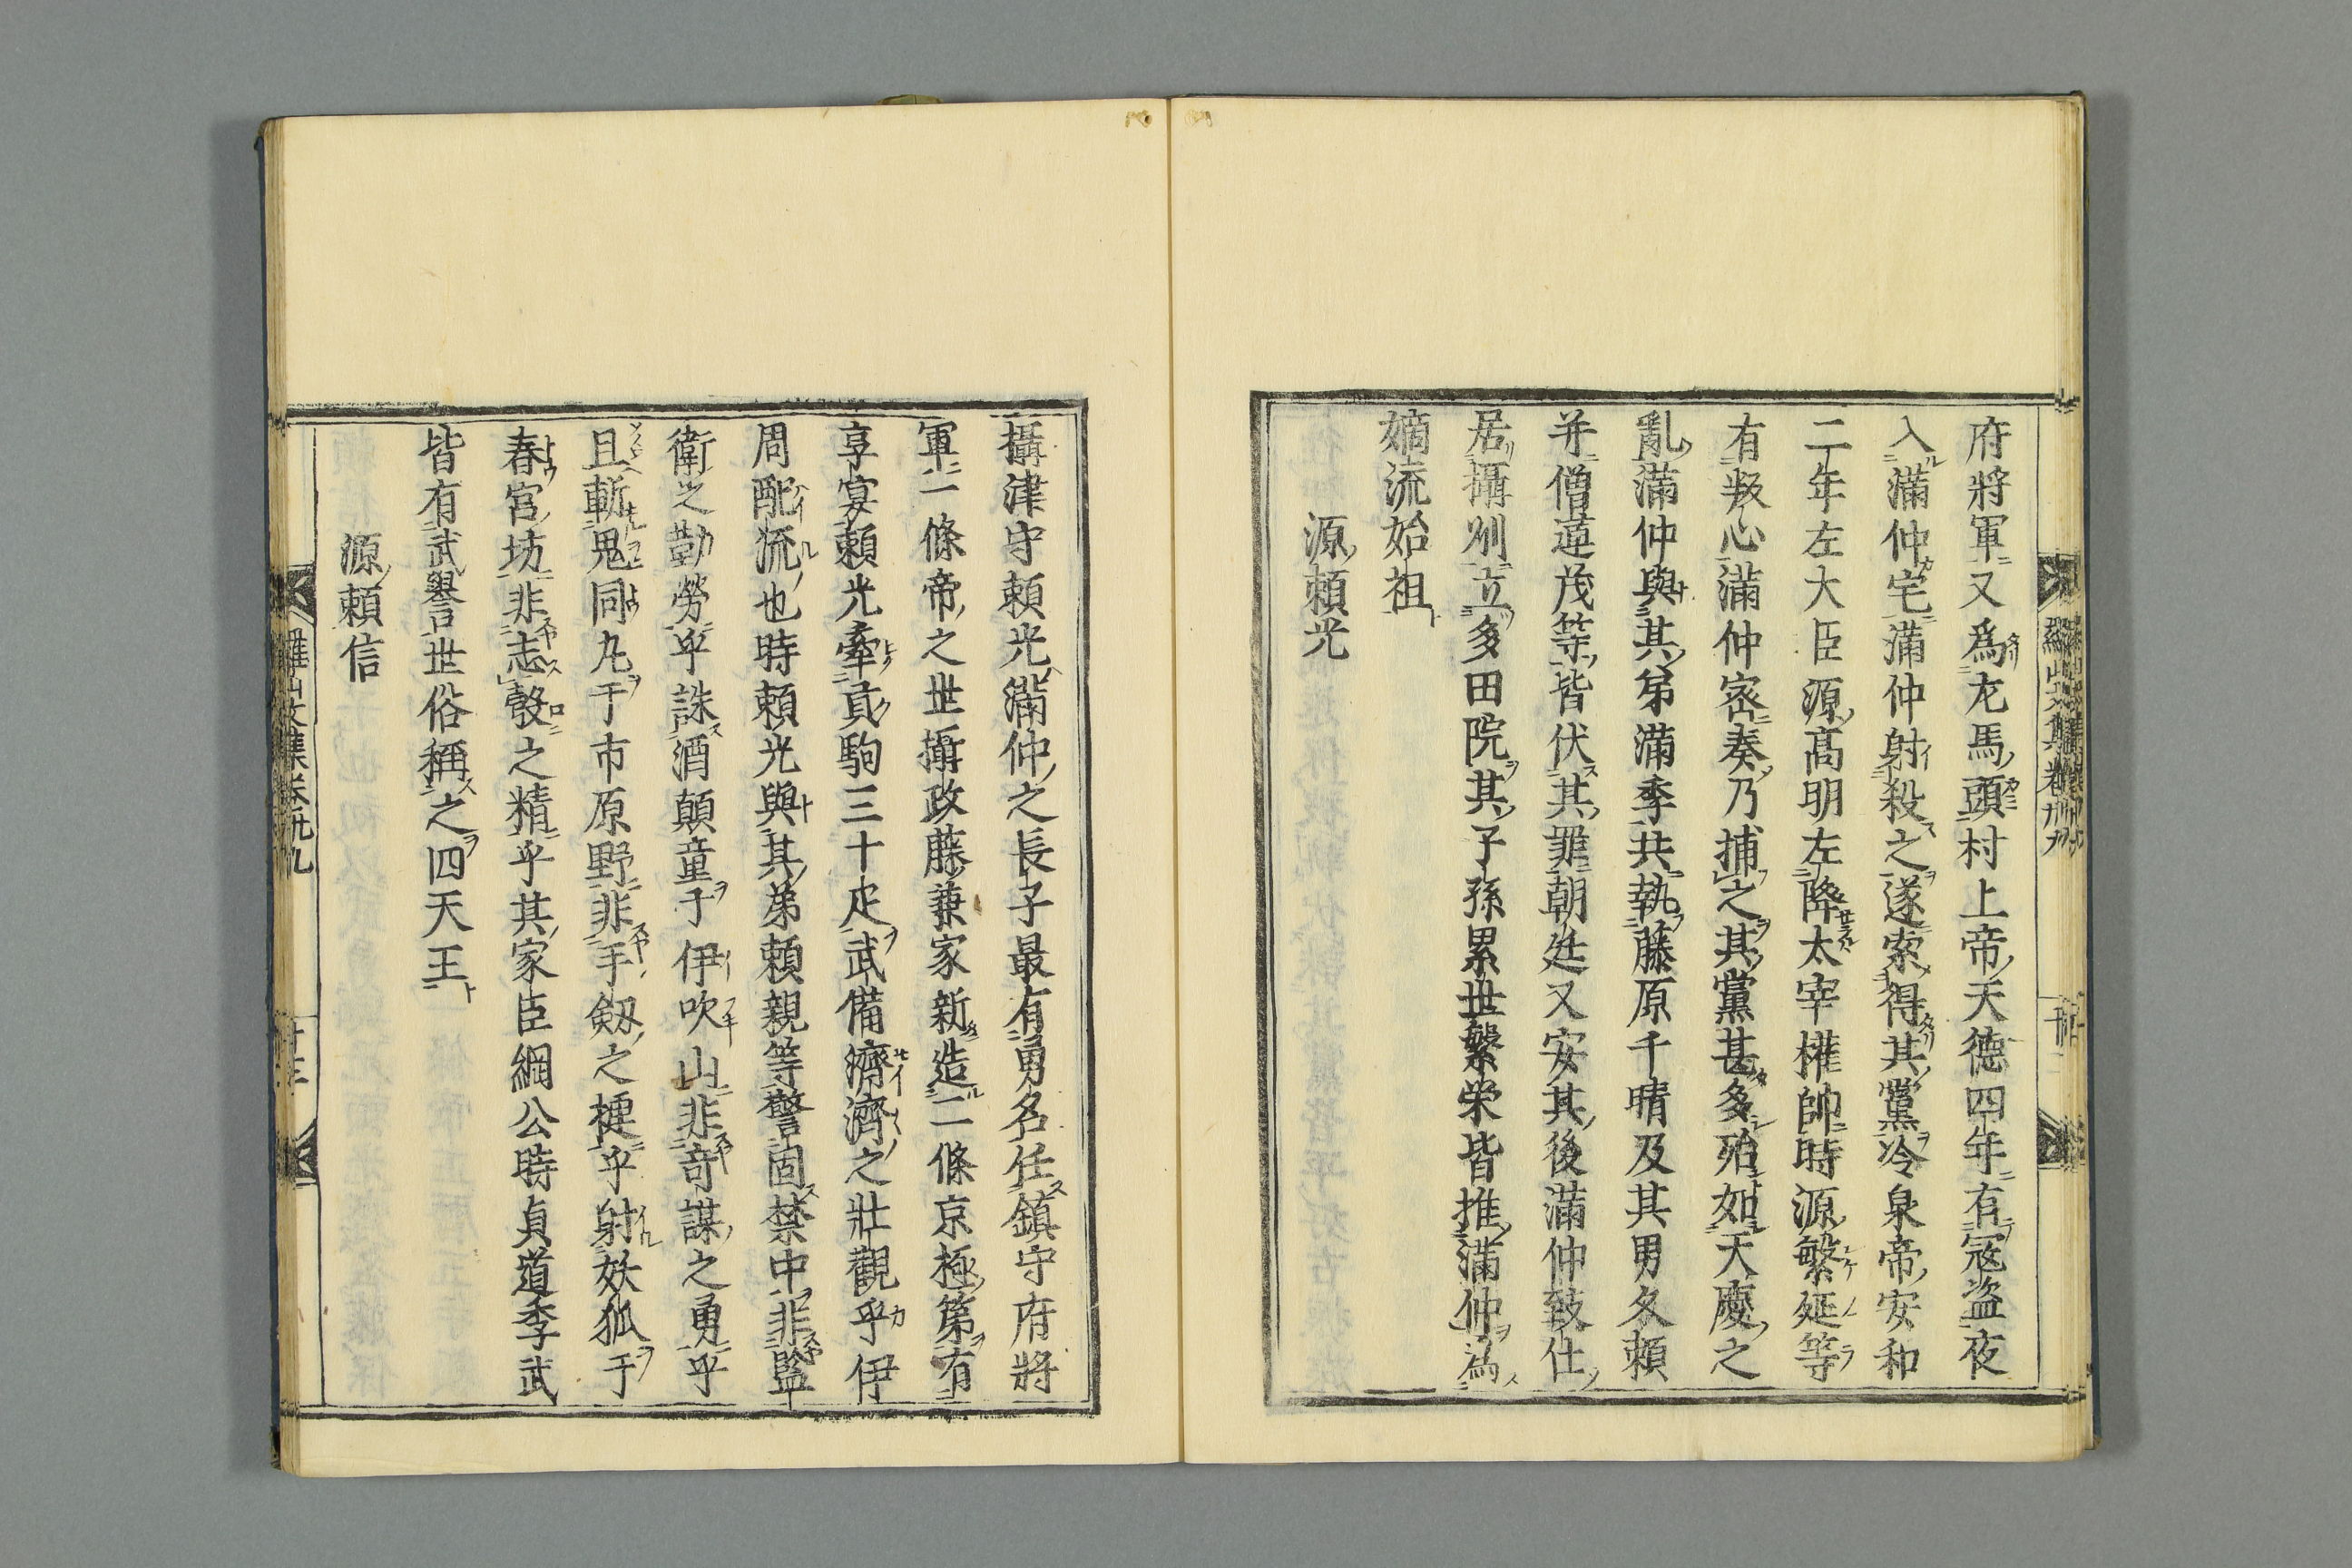 府將軍又爲左馬頭村上帝天德四年有冦盗夜
入滿仲宅滿仲射殺之遂索得其黨冷泉帝安和
二年左大臣源髙明左降太宰權帥時源繁延等
有叛心滿仲密奏乃捕之其黨甚多殆如天慶之
亂滿仲與其弟滿季共執藤原千晴及其男久頼
并僧蓮茂等皆伏其罪朝廷又安其後滿仲致仕
居攝別立多田院其子孫累世繁栄皆推滿仲爲
嫡流始祖
源頼光
攝津守頼光滿仲之長子最有勇名任鎮守府將
軍一條帝之世攝政藤兼家新造二條京極第有
享宴頼光牽貢駒三十疋武備濟濟之壯觀乎伊
周配流也時頼光與其弟頼親等警固禁中非監
衛之勤勞乎誅酒顛童于伊吹山非竒謀之勇乎
且斬鬼同丸于市原野非手劔之捷乎射妖狐于
春宮坊非志彀之精乎其家臣綱公時貞道季武
皆有武譽世俗稱之四天王
源頼信
羅山文集卷卅九
十三